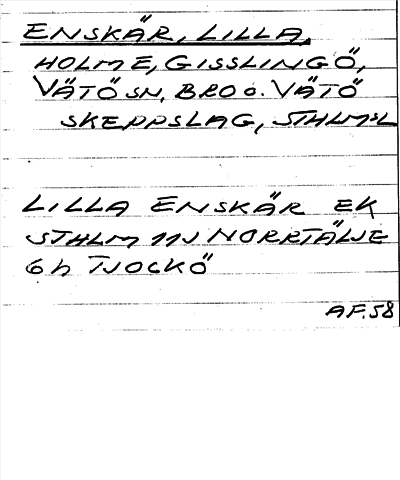 ENSKÄR, LILLA,
HOLME, GISSLINGÖ,
VÄTÖ SN, BRO O. VÄTÖ
SKEPPSLAG, STHLMSL
LILLA ENSKÄR EK
STHLM 11J NORRTÄLJE
6h TJOCKÖ
AF.58